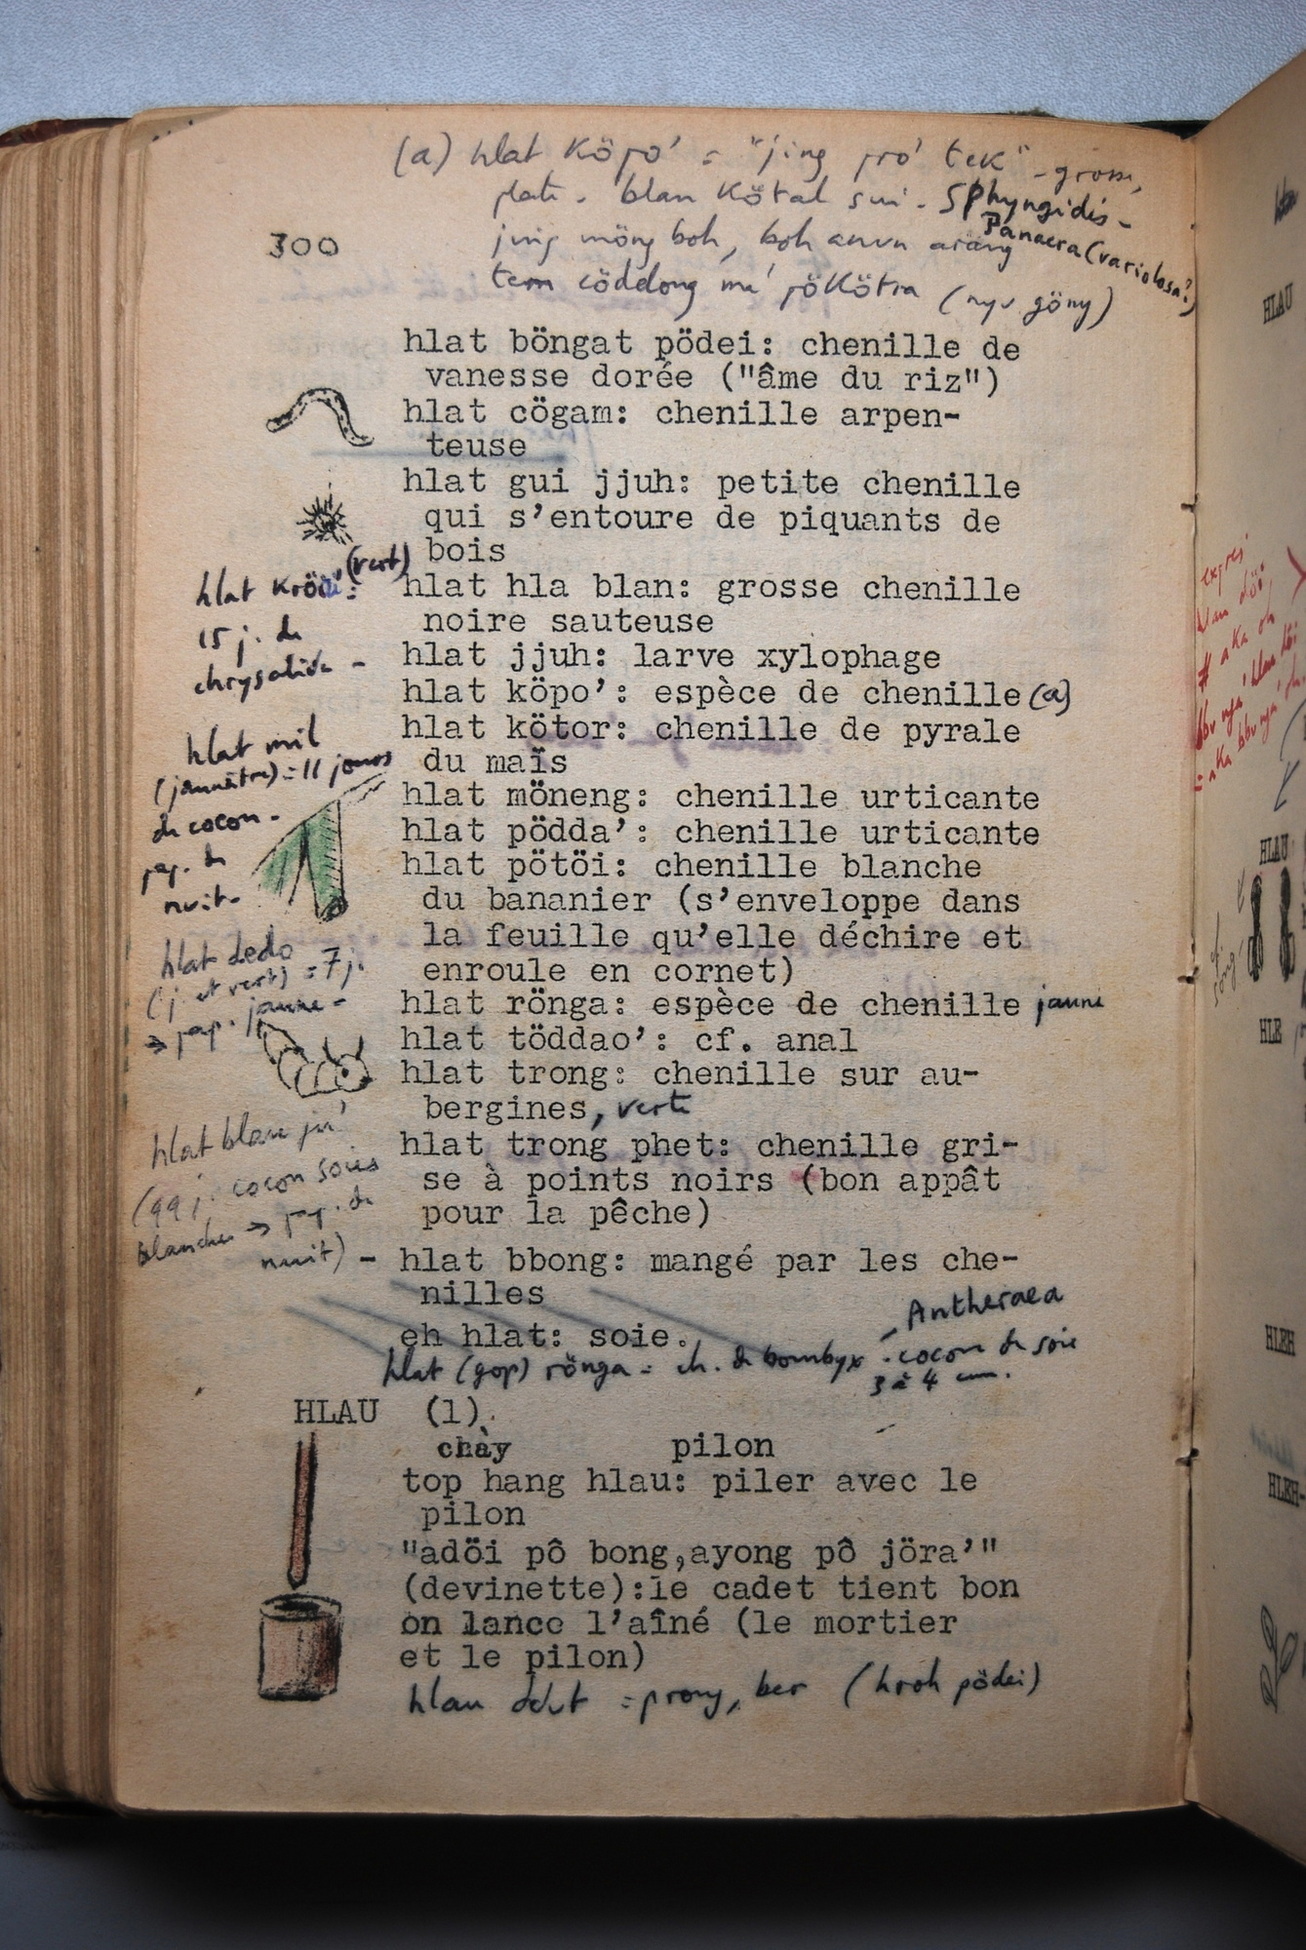 (a) hlat köpo' = "jing pro' tek" - grosse,
plate. blan kötal sui. Sphyngidis -
Panacra (variolosa?)
300
jing möng boh, boh anun arang
tem cöddong mă' pökötra (nyv göny)
hlat böngat pödei: chenille de
vanesse dorée ("âme du riz")
hlat cögam: chenille arpen-
teuse
hlat gui jjuh: petite chenille
qui s'entoure de piquants de
bois
hlat hla blan: grosse chenille
noire sauteuse
hlat jjuh: larve xylophage
hlat köpo': espèce de chenille (a)
hlat kötor: chenille de pyrale
du maïs
hlat möneng: chenille urticante
hlat pödda': chenille urticante
hlat pötöi: chenille blanche
du bananier (s'enveloppe dans
la feuille qu'elle déchire et
enroule en cornet)
hlat rönga: espèce de chenille jaune
hlat töddao': cf. anal
hlat trong: chenille sur au-
bergines, verte
hlat trong phet: chenille gri-
se à points noirs (bon appât
pour la pêche)
hlat bbong: mangé par les che-
nilles
eh hlat: soie.
hlat (gop) rönga = ch. de bombyx - Antheraea
- cocon de soie
3 à 4 cm.
(vert)
hlat
15 j. de
chrysalide -
hlat mil
(jaunâtre) = 11 jours
de cocon -
pap. de
nuit -
hlat dedo
(j. et vert) = 7 j.
→ pap. jaune -
hlat blan
(qq j. cocon soies
blanches → pap. de
nuit) -
HLAU (1).
chày pilon
top hang hlau: piler avec le
pilon
"adöi pô bong,ayong pô jöra'"
(devinette):le cadet tient bon
on lance l'aîné (le mortier
et le pilon)
hlau = prong, ber (hroh pödei)
HLAU
HLAU
HLE
HLEH
HLEH-